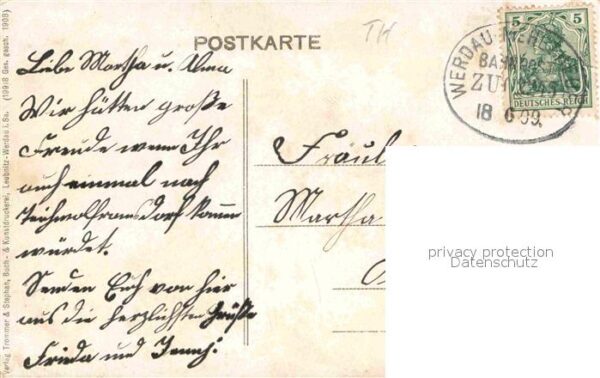 POSTKARTE
TH
Liebe Martha u. Alma
Wir hätten große
Freude wenn Ihr
auch einmal nach
Teichwolframsdorf kommen
würdet.
Senden Euch von hier
aus die herzlichsten Grüße
Frieda und Jenny.
Fräul
Martha
5 5
DEUTSCHES REICH
WERDAU
BAHNPOST
ZUG
18 6 09.
privacy protection
Datenschutz
Verlag Trommer & Stephan, Buch- & Kunstdruckerei, Leubnitz-Werdau i. Sa. (1908 Ges. gesch. 1908)